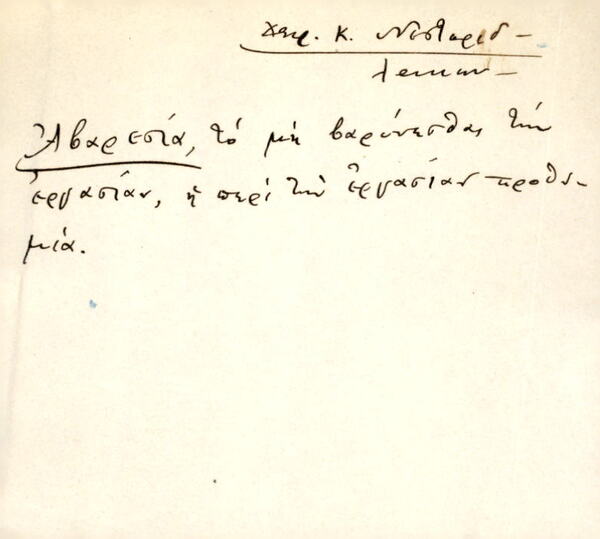 χειρ. Κ. Νεστορίδ-
Ἀβαρεσία, τό μή βαρύνεσθαι τήν
ἐργασίαν, ἡ περί τήν ἐργασίαν προθυ-
μία.